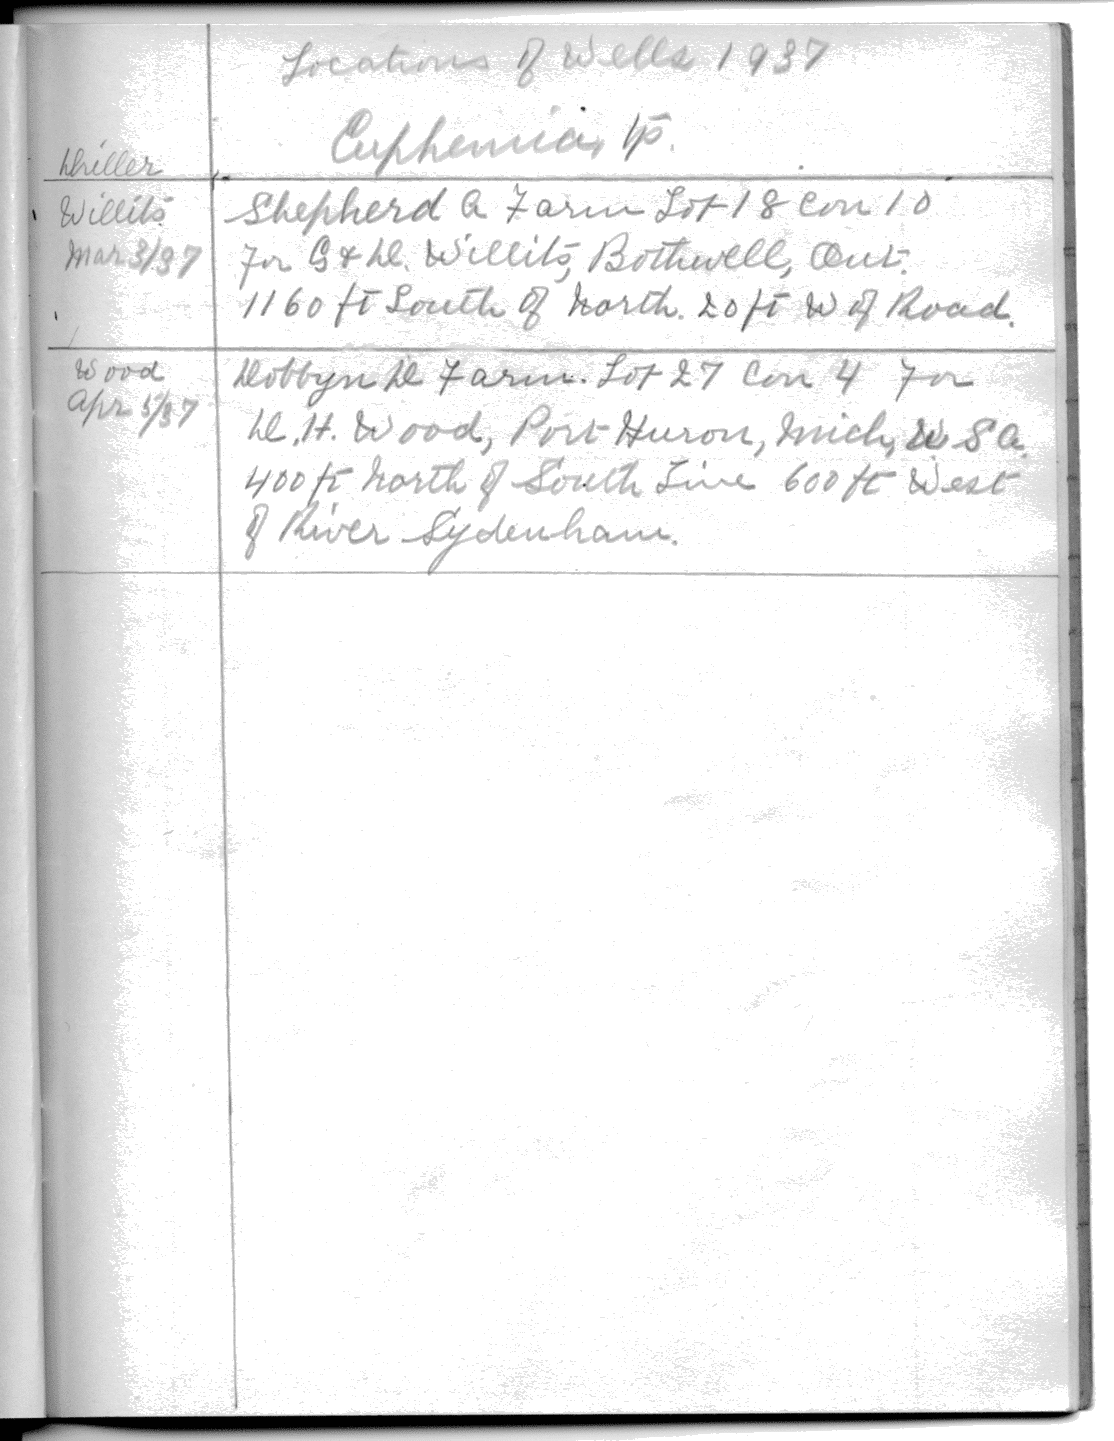 Locations of Wells 1937
Euphemia, Tp.
Driller
Willits
Mar 3/37
Shepherd A Farm Lot 18 Con 10
For G & D. Willits, Bothwell, Ont.
1160 ft South of North. 20 ft W of Road.
Wood
Apr 5/37
Dobbyn D Farm. Lot 27 Con 4 For
D. H. Wood, Port Huron, Mich, U S A.
400 ft North of South Line 600 ft West
of River Sydenham.